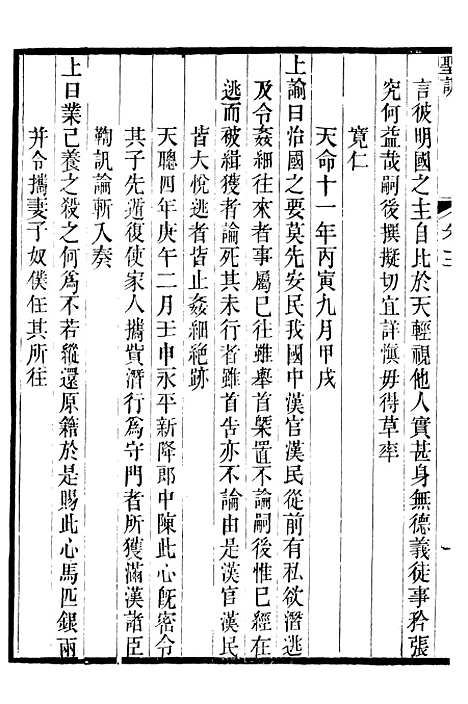 聖訓
卷三
言彼明國之主自比於天輕視他人實甚身無德義徒事矜張
究何益哉嗣後撰擬切宜詳慎毋得草率
寬仁
天命十一年丙寅九月甲戌
上諭曰治國之要莫先安民我國中漢官漢民從前有私欲潛逃
及令姦細往來者事屬已往雖舉首槩置不論嗣後惟已經在
逃而被緝獲者論死其未行者雖首告亦不論由是漢官漢民
皆大悅逃者皆止姦細絕跡
天聰四年庚午二月壬申永平新降郎中陳此心旣密令
其子先遁復使家人攜貲潛行為守門者所獲滿漢諸臣
鞫訊論斬入奏
上曰業已養之殺之何為不若縱還原籍於是賜此心馬匹銀兩
并令攜妻子奴僕任其所往